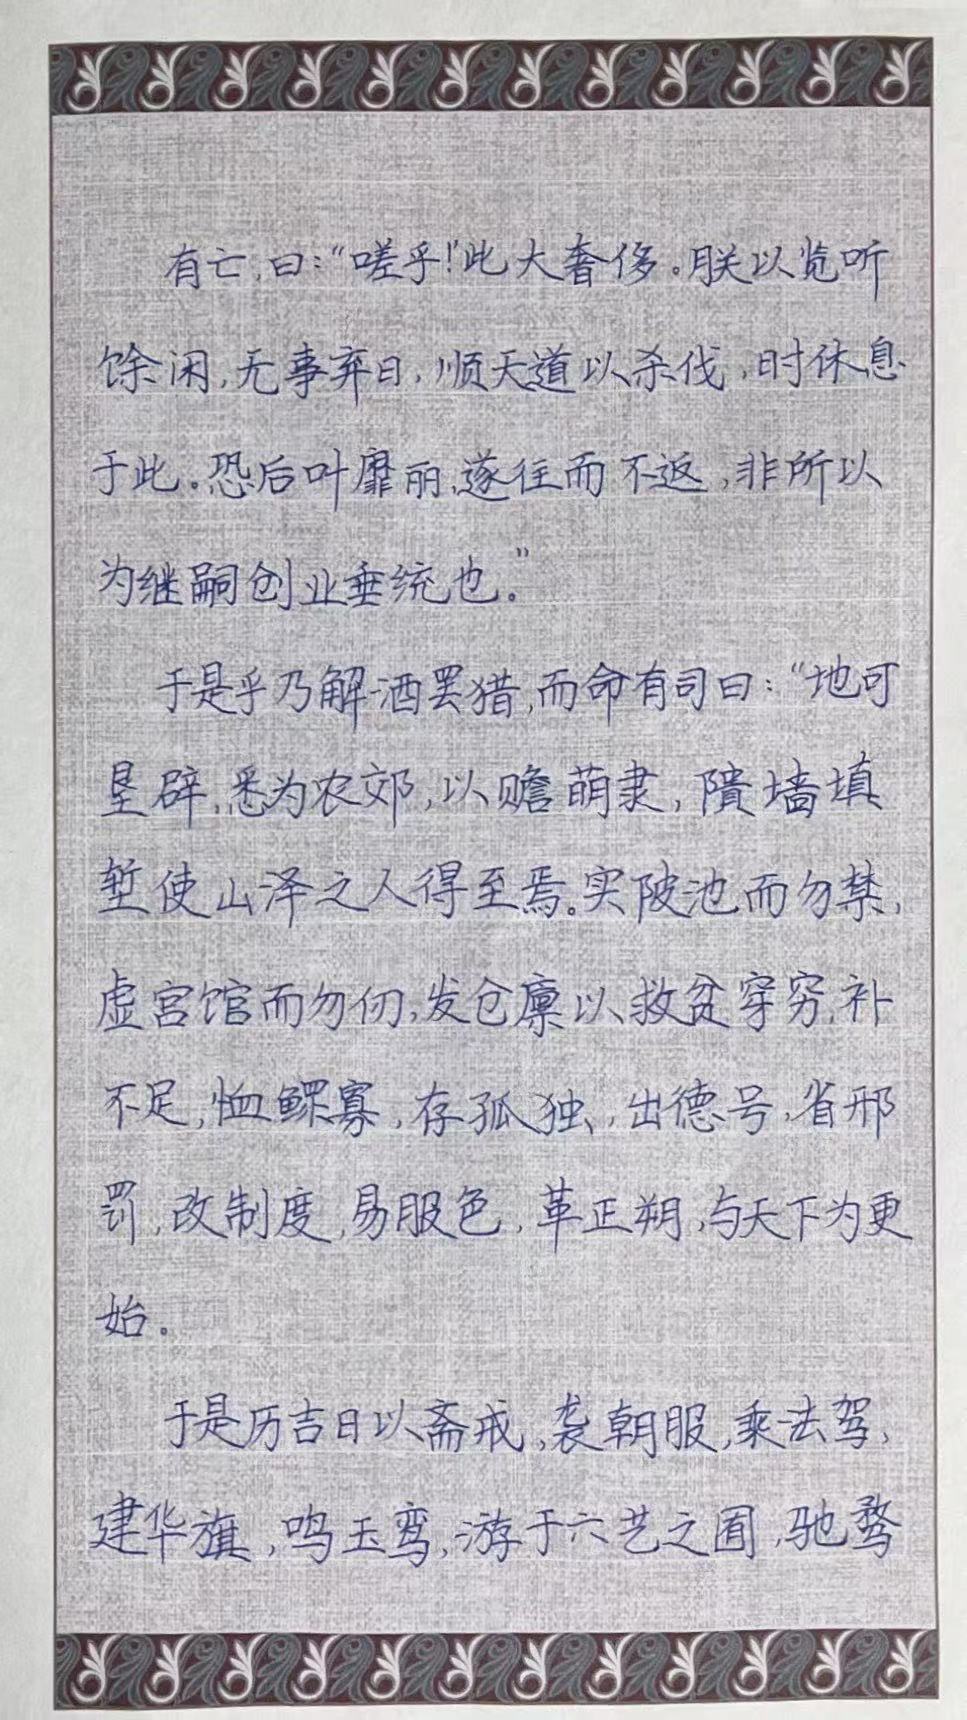 有亡,曰:“嗟乎!此大奢侈。朕以览听
馀闲,无事弃日,顺天道以杀伐,时休息
于此。恐后叶靡丽,遂往而不返,非所以
为继嗣创业垂统也。”
于是乎乃解酒罢猎,而命有司曰:“地可
垦辟,悉为农郊,以赡萌隶,隤墙填
堑使山泽之人得至焉。实陂池而勿禁,
虚宫馆而勿仞,发仓廪以救贫穷,补
不足,恤鳏寡,存孤独,出德号,省刑
罚,改制度,易服色,革正朔,与天下为更
始。
于是历吉日以斋戒,袭朝服,乘法驾,
建华旗,鸣玉鸾,游于六艺之囿,驰骛